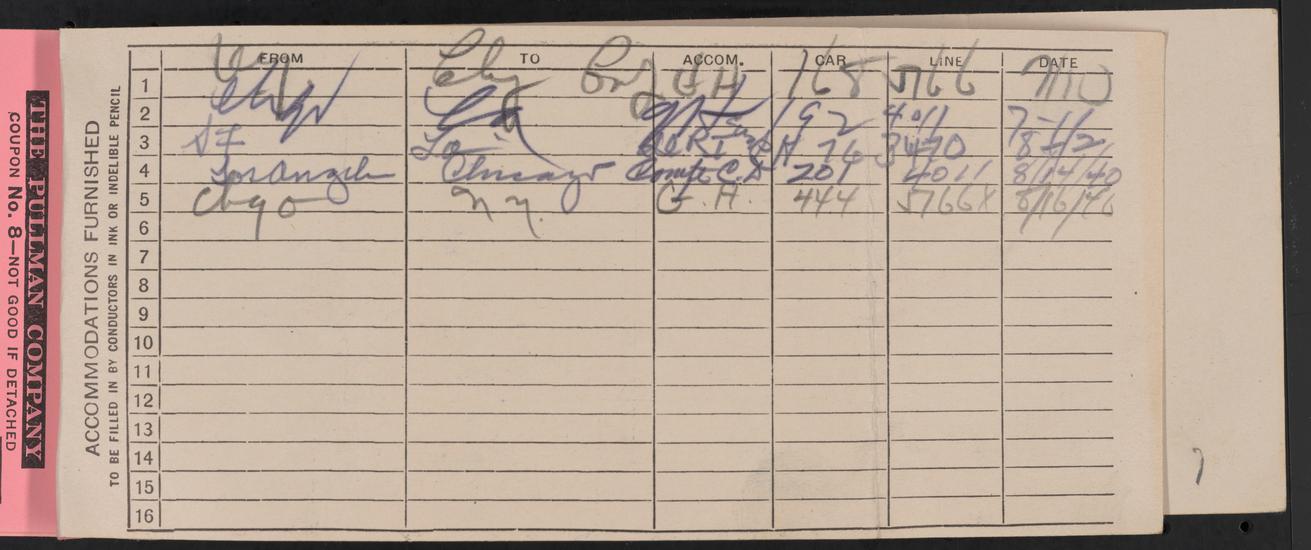 THE PULLMAN COMPANY
COUPON No. 8—NOT GOOD IF DETACHED
ACCOMMODATIONS FURNISHED
TO BE FILLED IN BY CONDUCTORS IN INK OR INDELIBLE PENCIL
FROM TO ACCOM. CAR LINE DATE
1 168 5766 7/10
2 192 4011 7-11
3 SF La 3470
4 Los Angeles Chicago Comp C.D 201 4011 8/14/40
5 Chgo N.Y. G.H. 444 5766X 8/16/40
6
7
8
9
10
11
12
13
14
15
16